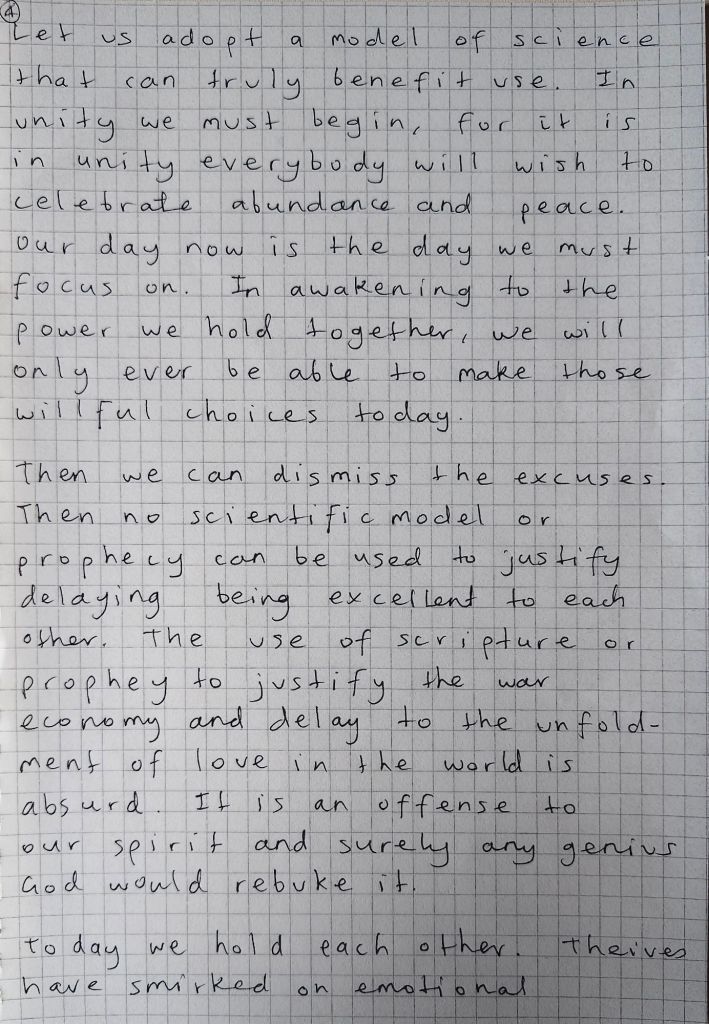 4
Let us adopt a model of science
that can truly benefit use. In
unity we must begin, for it is
in unity everybody will wish to
celebrate abundance and peace.
Our day now is the day we must
focus on. In awakening to the
power we hold together, we will
only ever be able to make those
willful choices today.
Then we can dismiss the excuses.
Then no scientific model or
prophecy can be used to justify
delaying being excellent to each
other. The use of scripture or
prophey to justify the war
economy and delay to the unfold-
ment of love in the world is
absurd. It is an offense to
our spirit and surely any genius
God would rebuke it.
Today we hold each other. Theives
have smirked on emotional